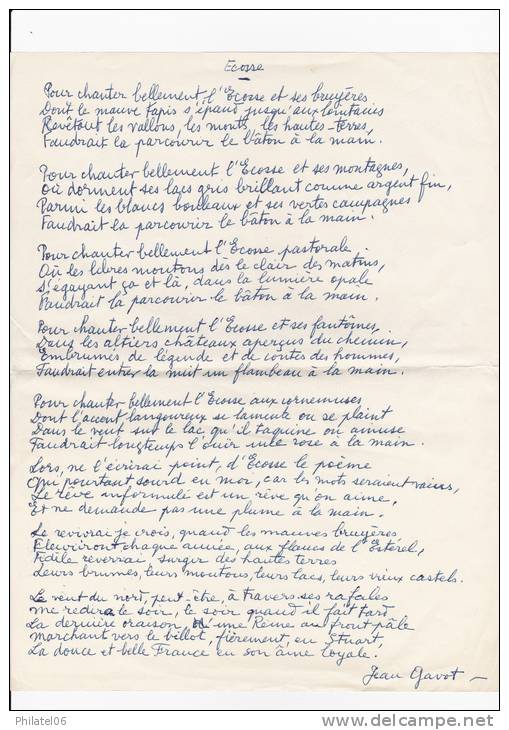 Ecosse
Pour chanter bellement l'Ecosse et ses bruyères
Dont le mauve tapis s'épand jusqu'aux lointains
Revêtant les vallons, les monts, les hautes-terres,
Faudrait la parcourir le bâton à la main.
Pour chanter bellement l'Ecosse et ses montagnes,
Où dorment ses lacs gris brillant comme argent fin,
Parmi les blancs bouleaux et ses vertes campagnes
Faudrait la parcourir le bâton à la main.
Pour chanter bellement l'Ecosse pastorale,
Où les libres moutons dès le clair des matins,
S'égayant ça et là, dans la lumière opale
Faudrait la parcourir le bâton à la main.
Pour chanter bellement l'Ecosse et ses fantômes,
Dans les altiers châteaux aperçus du chemin,
Embrumés, de légende et de contes des hommes,
Faudrait entrer la nuit un flambeau à la main.
Pour chanter bellement l'Ecosse aux cornemuses
Dont l'accent langoureux se lamente ou se plaint
Dans le vent sur le lac qu'il taquine ou amuse
Faudrait longtemps l'ouir une rose à la main.
Lors, ne l'écrirai point, d'Ecosse le poème
Qui pourtant sourd en moi, car les mots seraient vains,
Le rêve informulé est un rêve qu'on aime,
Et ne demande pas une plume à la main.
Le revivrai je crois, quand les mauves bruyères
Fleuriront chaque année, aux flancs de l'Esterel,
Fidèle reverrai, surgir des hautes terres
Leurs brumes, leurs moutons, leurs lacs, leurs vieux castels.
Le vent du nord, peut-être, à travers ses rafales
me redira le soir, le soir quand il fait tard
La dernière oraison, d'une Reine au front pâle
Marchant vers le billot, fièrement, en Stuart,
La douce et belle France en son âme loyale.
Jean Gavot
Philatel06
www.delcampe.net